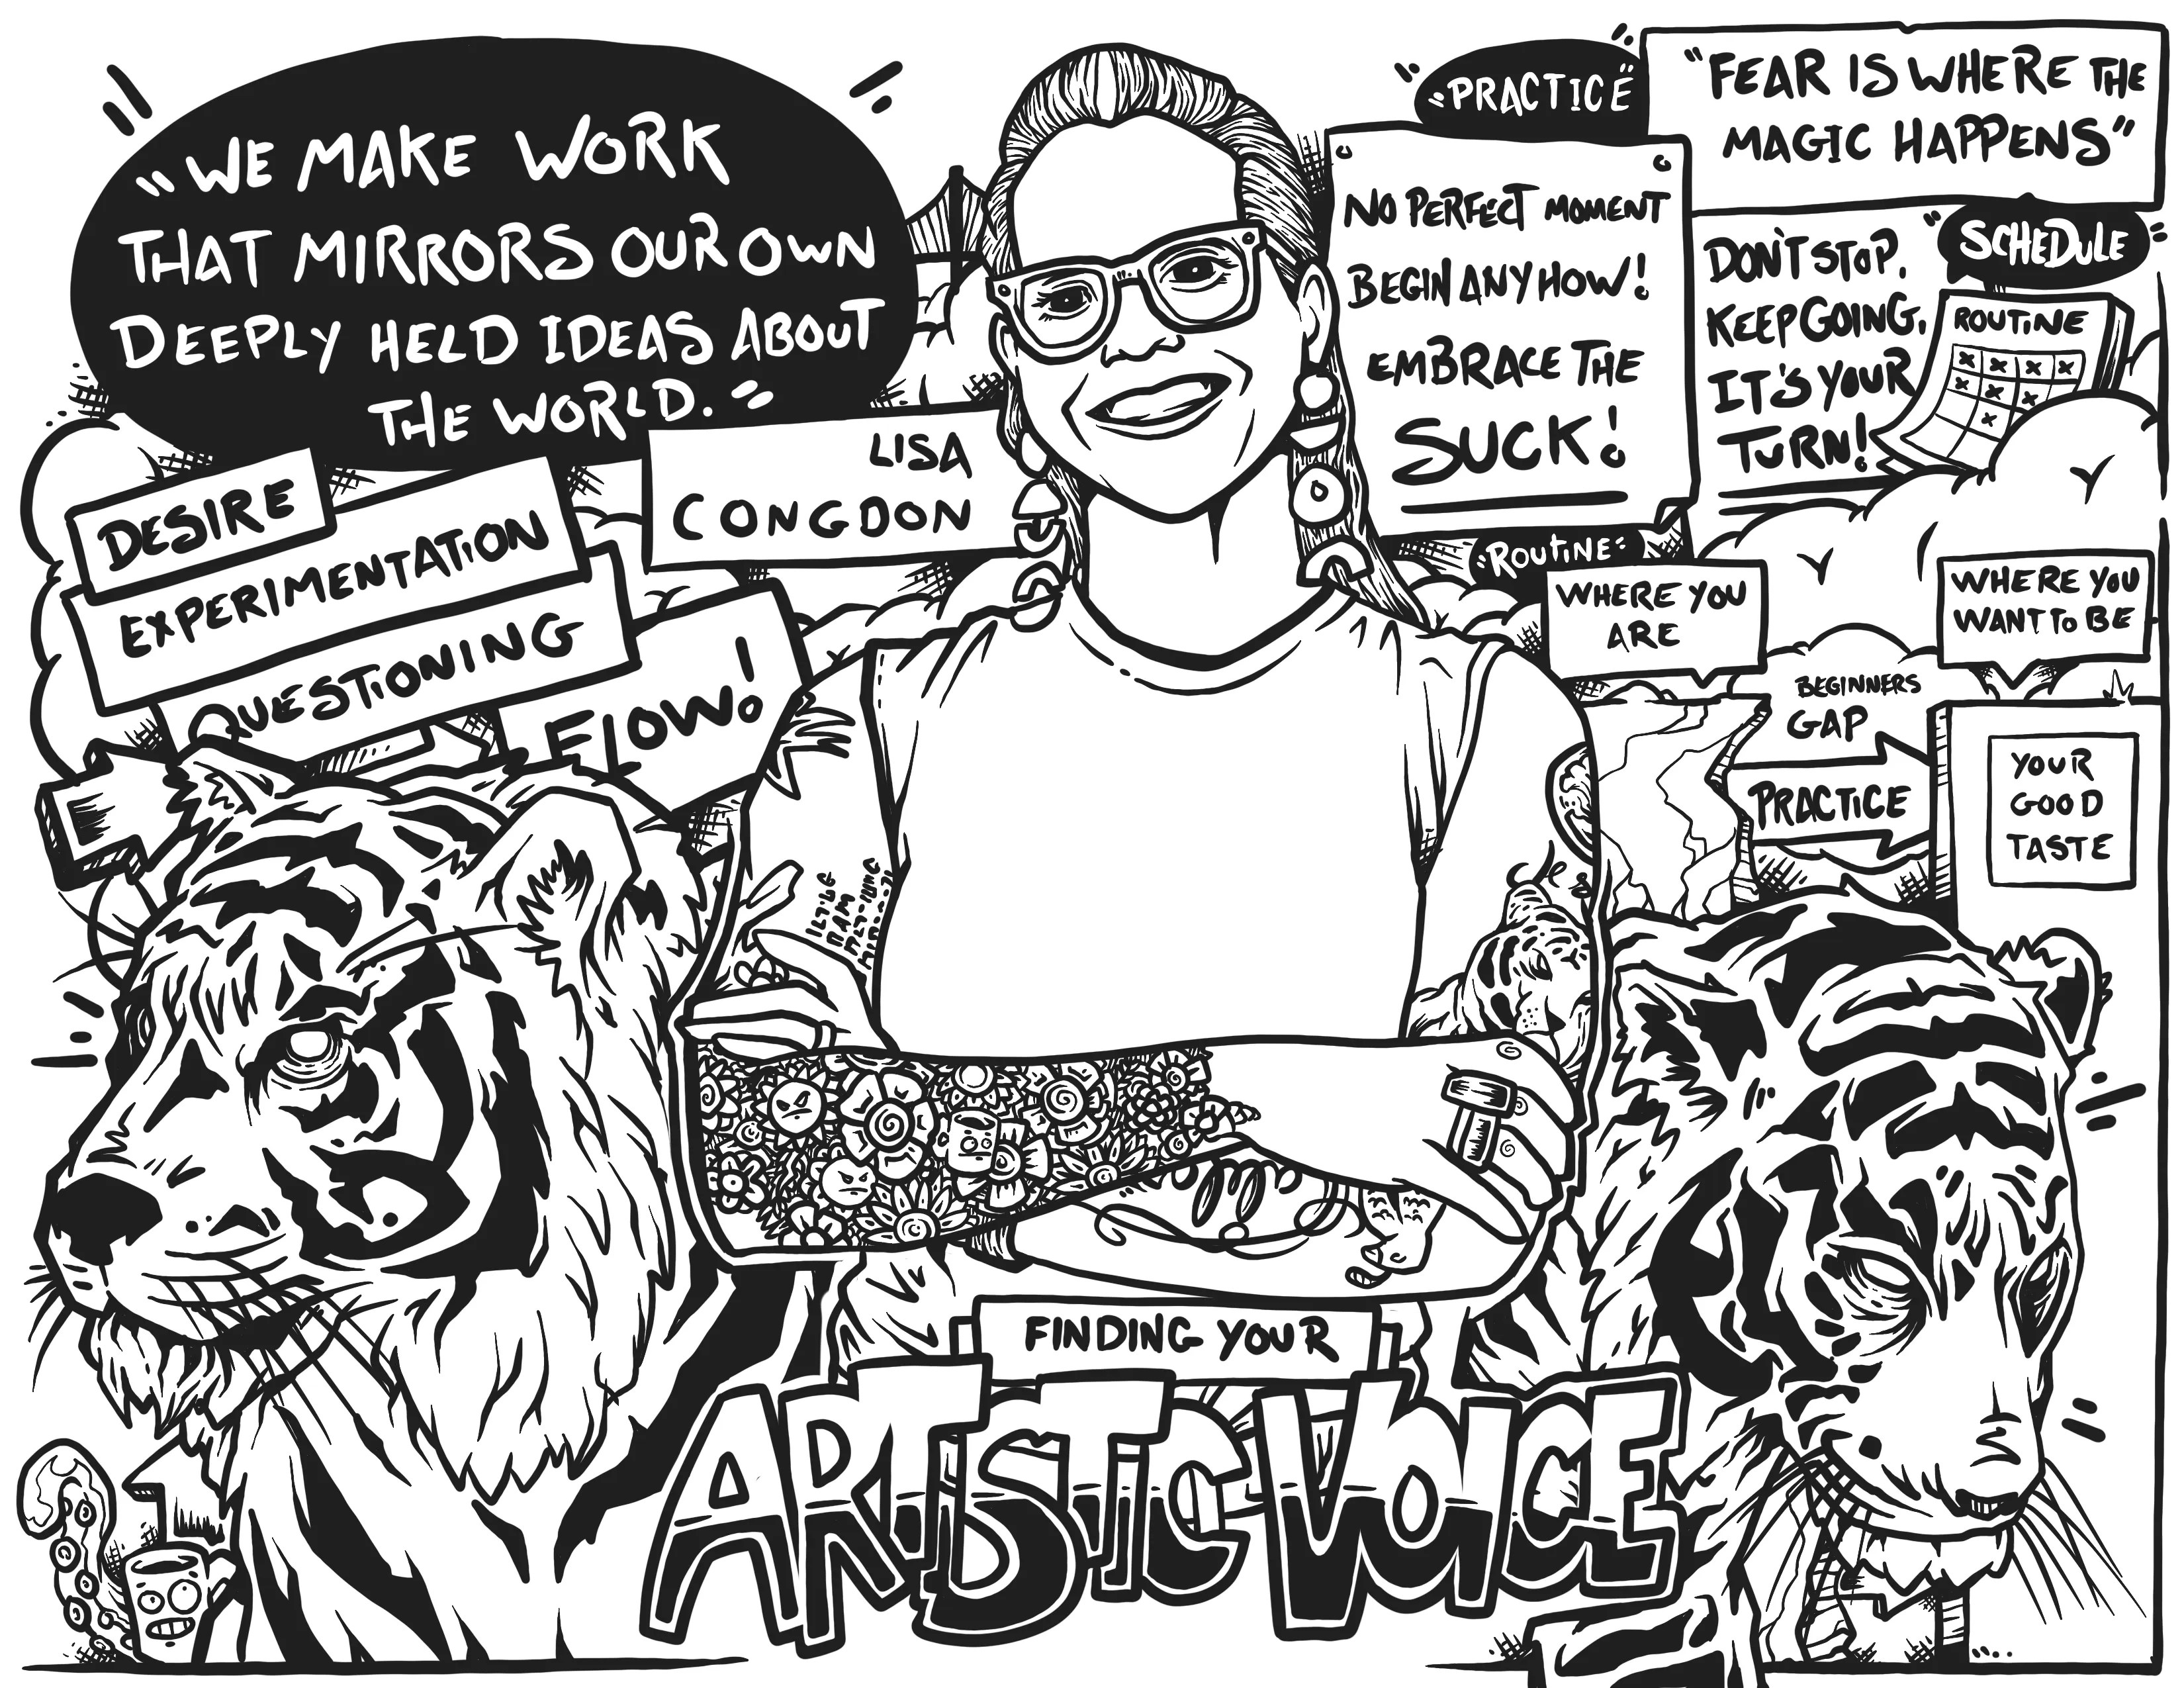 "WE MAKE WORK
THAT MIRRORS OUR OWN
DEEPLY HELD IDEAS ABOUT
THE WORLD."
LISA
CONGDON
DESIRE
EXPERIMENTATION
QUESTIONING
FLOW!
"PRACTICE"
NO PERFECT MOMENT
BEGIN ANYHOW!
EMBRACE THE
SUCK!
"FEAR IS WHERE THE
MAGIC HAPPENS"
DON'T STOP.
KEEP GOING.
IT'S YOUR
TURN!
"SCHEDULE"
ROUTINE
"ROUTINE"
WHERE YOU
ARE
WHERE YOU
WANT TO BE
BEGINNERS
GAP
PRACTICE
YOUR
GOOD
TASTE
FINDING YOUR
ARTISTIC VOICE